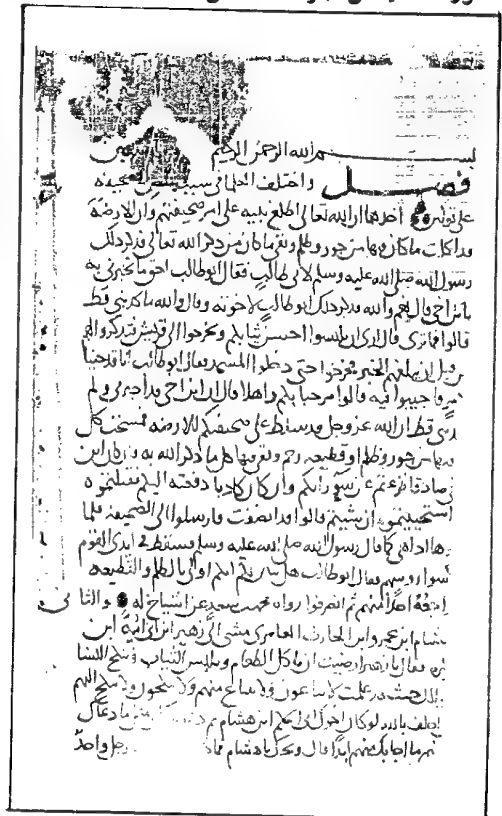 بسم الله الرحمن الرحيم
فصل واختلف العلما في سبب نقض الصحيفة
على قولين احدها ان الله تعالى اطلع نبيه على امر صحيفتهم وان الارضة
قد اكلت ما كان فيها من جور وظلم وبقي ما كان من ذكر الله تعالى فذكر ذلك
رسول الله صلى الله عليه وسلم لابي طالب فقال ابو طالب احق ما تخبرني به
يا بن اخي قال نعم والله فذكر ذلك ابو طالب لاخوته وقال والله ما كذبني قط
قالوا فما ترى قال ارى ان تلبسوا احسن ثيابكم وتخرجوا الى قريش فتذكروا لهم
قبل ان يبلغهم الخبر فخرجوا حتى دخلوا المسجد فقال ابو طالب انا قد جينا
فاجيبوا فيه قالوا مرحبا بكم واهلا قال ان ابن اخي قد اخبرني ولم
قط ان الله عز وجل قد سلط على صحيفتكم الارضة فمسخت كل
فيها من جور وظلم او قطيعة رحم وبقي فيها كل ما ذكر الله به فان كان ابن
صادقا نزعتم عن سو رايكم وان كان كاذبا دفعته اليكم فقتلتموه
استحييتموه ان شيتم قالوا قد انصفت فارسلوا الى الصحيفة فلما
اذا هي كما قال رسول الله صلى الله عليه وسلم فسقط في ايدي القوم
روسهم فقال ابو طالب هل تبين لكم انكم اولى بالظلم والقطيعة
احد منهم ثم انصرفوا رواه محمد بن سعد عن اشياخ له والثاني
هشام ابن عمرو ابن الحارث العامري مشى الى زهير ابن ابي امية ابن
فقال يا زهير ارضيت ان تاكل الطعام وتلبس الثياب وتنكح النسا
حيث قد علمت لا يبتاعون ولا يبتاع منهم ولا ينكحون ولا ينكح اليهم
احلف بالله لو كان اخوال ابي الحكم ابن هشام ثم دعوته الى مثل ما دعاك
ما اجابك منهم ابدا قال ويحك يا هشام فماذا رجل واحد